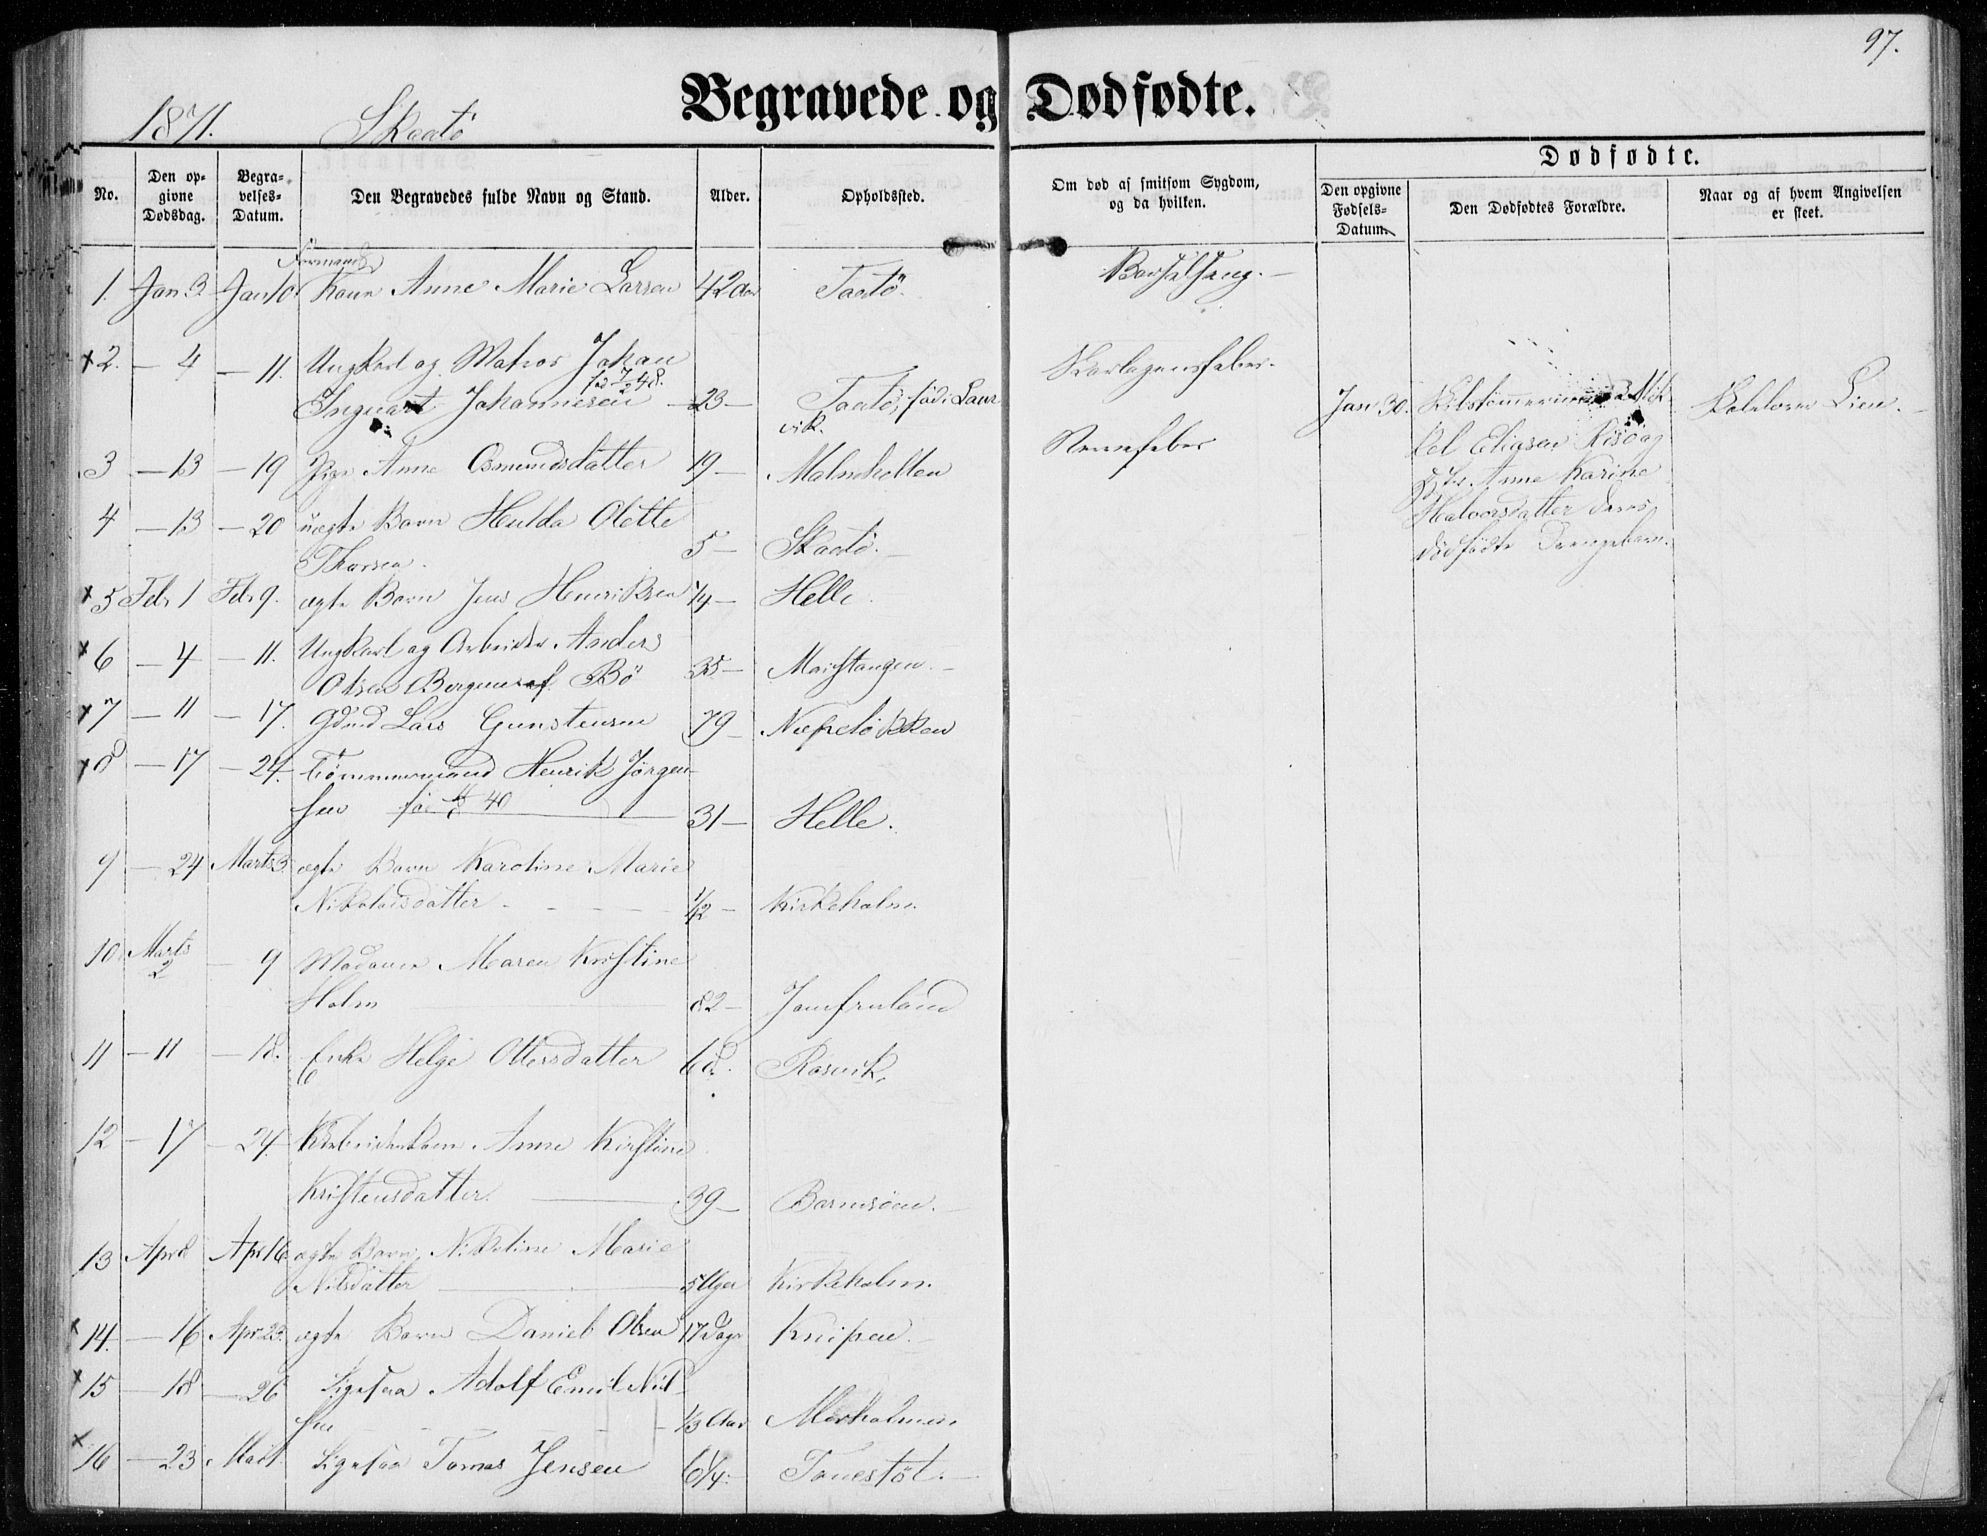 97.
Begravede og Dødfødte.
1871. Skaatö
No.
Den opgivne Dødsdag.
Begravelses-Datum.
Den Begravedes fulde Navn og Stand.
Alder.
Opholdssted.
Om død af smitsom Sygdom, og da hvilken.
Dødfødte.
Den opgivne Fødsels-Datum.
Den Dødfødtes Forældre.
Naar og af hvem Angivelsen er skeet.
Formands
1. Jan 3. Jan 10. Kone Anne Marie Larsen 42 Aar Taatö. Barselseng.
x 2. — 4 — 11. Ungkarl og Matros Johan Skarlagensfeber.
Inguart Johannesen — 23 — Taatö, föd i Laur
vik.
3 — 13 — 19 Pige Anne Osmundsdatter 19 — Malmholten Nervefeber
4 — 13 — 20 uægte Barn Hulda Olette
Thorsen. 5 — Skaatö. —
x 5 Feb. 1 Feb. 9. ægte Barn Jens Henriksen 1/4 — Helle.
x 6 — 4 — 11. Ungkarl og Arbeider Anders
Olsen Bergene af Bö 35 — Maistangen. —
x 7 — 11 — 17. Gdmd Lars Gunstensen 79 — Næpelökken
x 8 — 17 — 24. Tömmermand Henrik Jörgen-
sen 31 — Helle.
9 — 24 Marts 3. ægte Barn Karoline Marie
Nikolaisdatter 1/2 — Kirkeholm.
10 Marts 2 — 9 Madame Maren Kristine
Holm 82 — Jomfruland
11 — 11 — 18. Enke Helge Ottersdatter 68. Rösvik.
12 — 17 — 24. Arbeiderkone Anne Kirstine
Kristensdatter. 39 — Barmsöen. —
13 Apr 8 Apr 16 ægte Barn Nikoline Marie
Nilsdatter 5 Uger Kirkeholm.
x 14. — 16 Apr. 23. ægte Barn Daniel Olsen 17 Dage Knipen. —
x 15 — 18 — 26 Ligesaa Adolf Emil Nil-
sen 1/3 Aar Morholmen
x 16 — 23 Mai 1. Ligesaa Tomas Jensen 6 1/4. Tonestöl. —
Jan 30. Mik-
kel Eliasen Risö og
Anne Karine
Halvorsdatter deres
dödfödte Drengebarn.
Lien. —